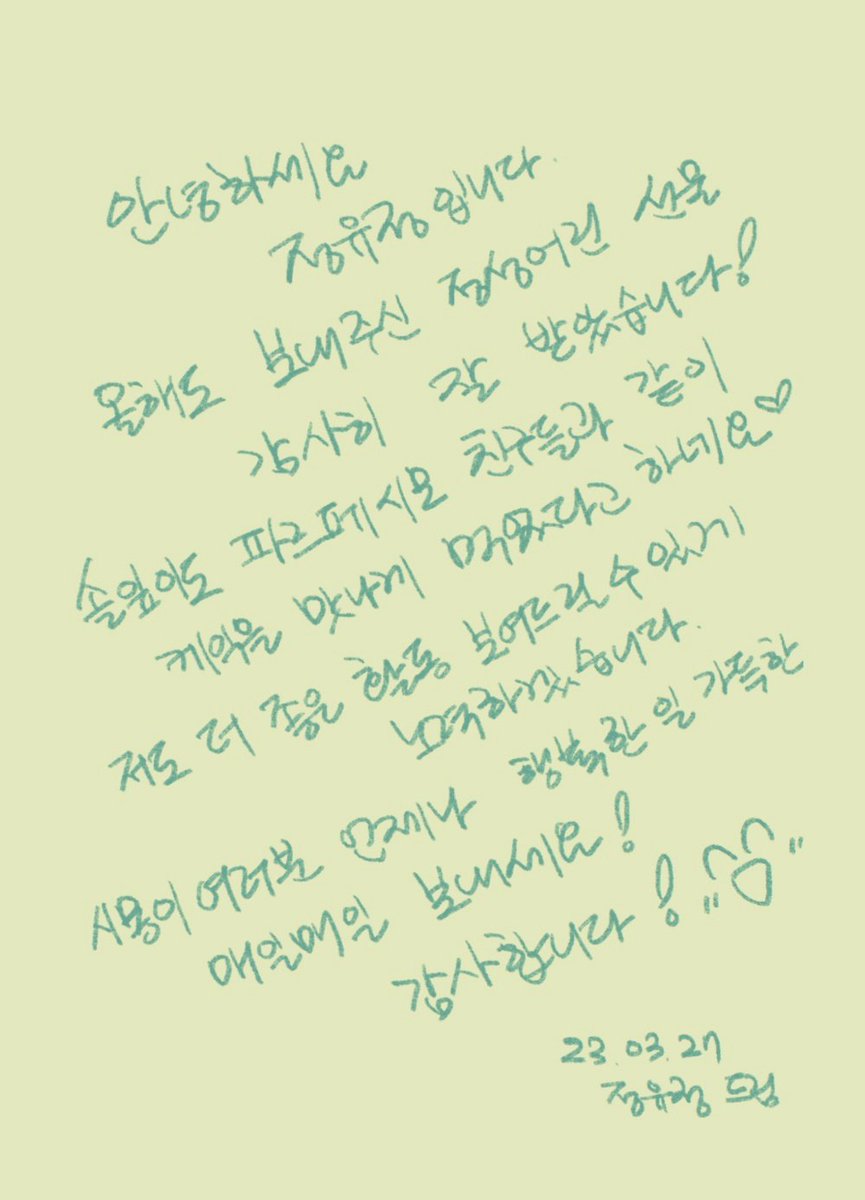 안녕하세요
정유정입니다.
올해도 보내주신 정성어린 선물
감사히 잘 받았습니다!
솔잎이도 파르페시모 친구들과 같이
케익을 맛나게 먹었다고 하네요♡
저도 더 좋은 활동 보여드릴 수 있게
노력하겠습니다.
시몽이 여러분 언제나 행복한 일 가득한
매일매일 보내세요!
감사합니다!
23.03.27
정유정 드림